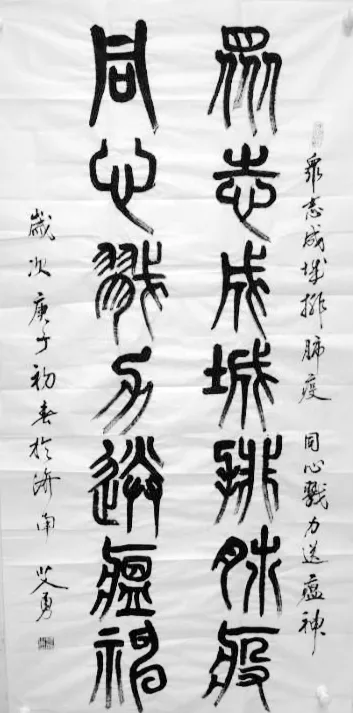 衆志成城排肺疫 同心戮力送瘟神
眾志成城排肺疫
同心戮力送瘟神
歲次庚子初春於濟南 艾勇